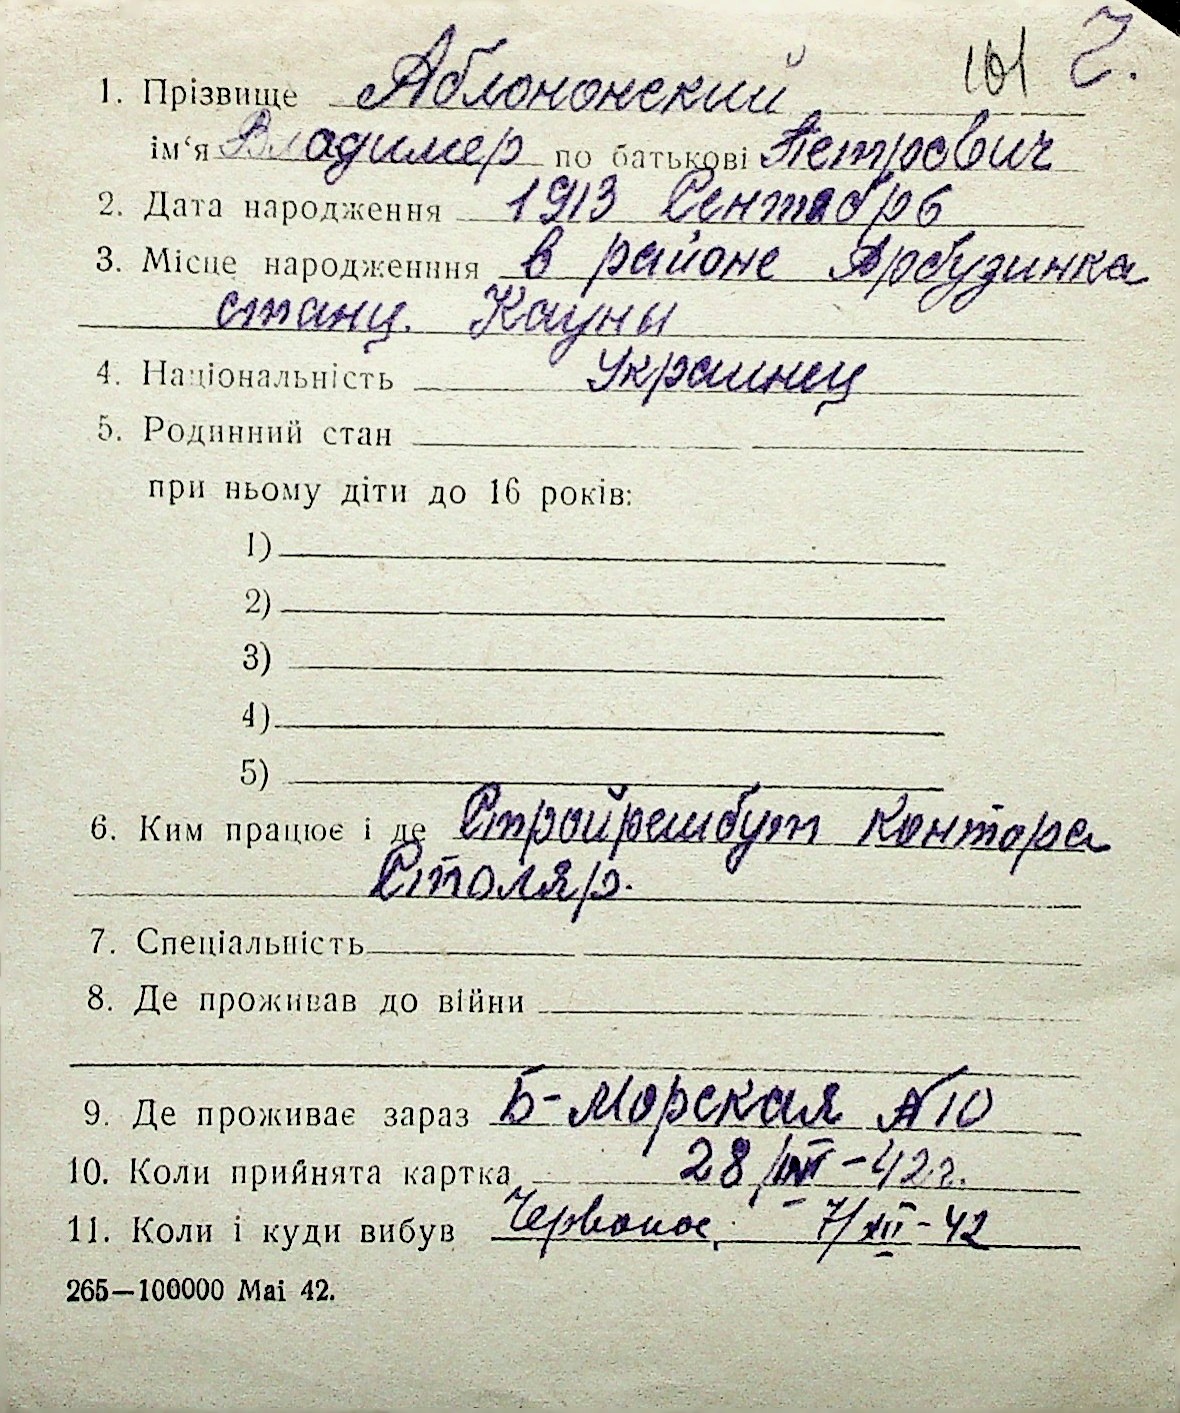 101 Г.
1. Прізвище Аблононский
ім‘я Владимер по батькові Петрович
2. Дата народження 1913 Сентабрь
3. Місце народженння в районе Арбудинка
станц. Кауны
4. Національність Украинец
5. Родинний стан
при ньому діти до 16 років:
1)
2)
3)
4)
5)
6. Ким працює і де Стройрешбут контора
Столяр.
7. Спеціальність
8. Де проживав до війни
9. Де проживає зараз Б-Морская №10
10. Коли прийнята картка 28/ -42г.
11. Коли і куди вибув Червоное. 7/XII-42
265—100000 Mai 42.